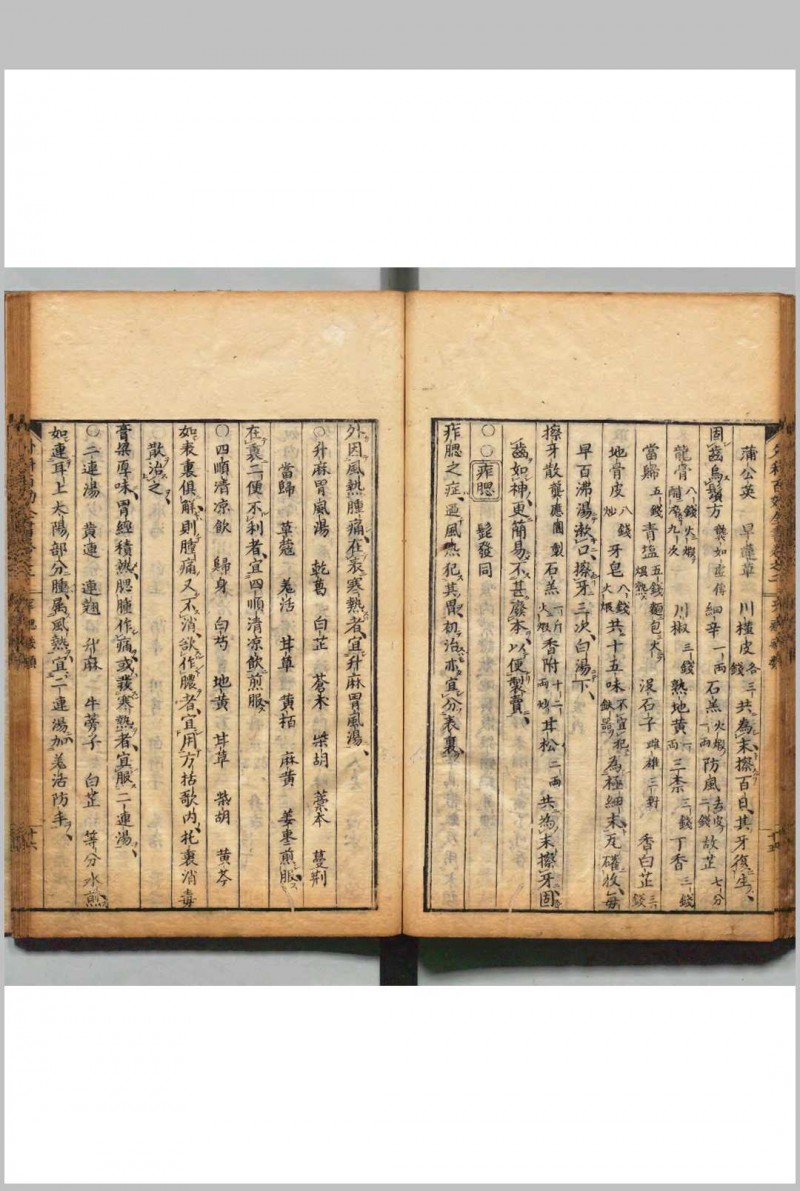 蒲公英 旱蓮草 川槿皮各三錢 共為末擦百日其牙復生
固齒烏鬚方 細辛一兩 石羔火煅一兩 防風去皮二錢 故芷七分
龍骨八錢火煅醋卒九次 川椒三錢 熟地黃一兩 三柰三錢 丁香三錢
當歸五錢 青塩五錢 麵包火煨熱 沒石子雌雄三對 香白芷三錢
地骨皮八錢 牙皂八錢火煅 共十五味不宜犯鉄器 為極細末瓦確收每
早百沸湯漱口擦牙三次白湯下
擦牙散龔應圃製 石羔一斤火煅 香附十二兩 甘松二兩 共為末擦牙固
齒如神更簡易不甚廢本以便製賣
○○痄腮 髭發同
痄腮之症過風熱犯其胃初治亦宜分表裏
外因風熱腫痛在表寒熱者宜升麻胃風湯
○升麻胃風湯 乾葛 白芷 蒼朮 柴胡 藁本 蔓荆
當歸 草蔻 羌活 甘草 黃栢 麻黃 姜棗煎服
在裏二便不利者宜四順清凉飲煎服
○四順清凉飲 歸身 白芍 地黃 甘草 柴胡 黃芩
如表裏俱解則腫痛又不消欲作膿者宜用方括歌内托裏消毒
散治之
膏粱厚味胃經積熱腮腫作痛或發寒熱者宜服二連湯
○二連湯 黃連 連翹 升麻 牛蒡子 白芷 等分水煎
如連耳上太陽部分腫属風熱宜二連湯加羌活防丰
十六